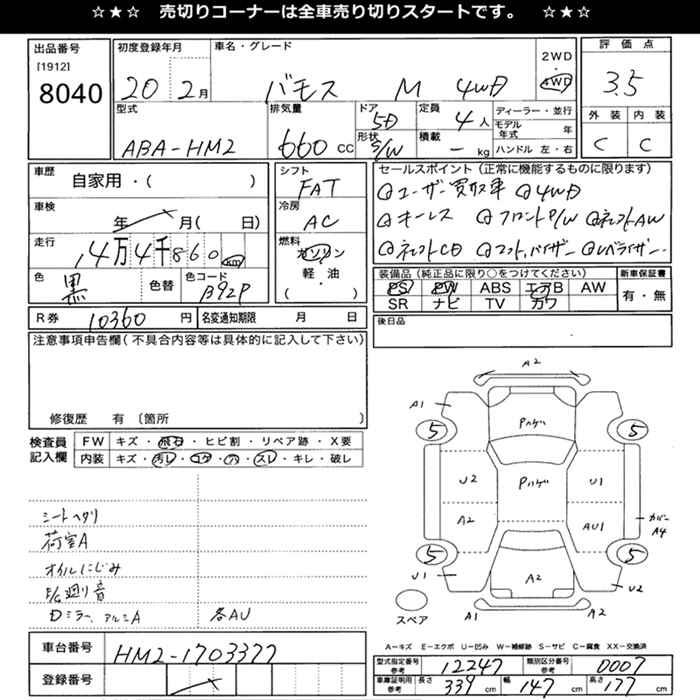 ☆★☆ 売切りコーナーは全車売り切りスタートです。 ☆★☆
出品番号
[1912]
8040
初度登録年月
20 2月
車名・グレード
バモス M 4WD
2WD
・
4WD
評価点
3.5
外装 内装
C C
型式
ABA-HM2
排気量
660 CC
ドア
5D
形状
S/W
定員
4人
積載
- kg
ディーラー・並行
モデル年式 年
ハンドル 左・右
車歴
自家用・( )
車検
年 月( 日)
走行
14万4千860 km
色
黒
色替
色コード
B92P
シフト
FAT
冷房
AC
燃料
ガソリン
軽・油
( )
セールスポイント(正常に機能するものに限ります)
ユーザー買取車 4WD
キーレス フロントP/W
装備品(純正品に限り○をつけてください)
PS PW ABS エアB AW
SR ナビ TV カワ
新車保証書
有・無
R券 10360 円
名変通知期限 月 日
後日品
注意事項申告欄(不具合内容等は具体的に記入して下さい)
修復歴 有 〔箇所
検査員
記入欄
FW キズ・飛石・ヒビ割・リペア跡・X要
内装 キズ・汚レ・コゲ・穴・スレ・キレ・破レ
シートヘタリ
荷室A
オイルにじみ
E/G廻り音
Dミラー、アルミA 各AU
A2
A1
Pハゲ
5 5
U2 Pハゲ U1
A2 AU1
カバー
A4
5 5
U1 A2 U2
A1 A2
スペア
A-キズ E-エクボ U-凹み W-補修跡 S-サビ C-腐食 XX-交換済
車台番号
HM2-1703377
登録番号
型式指定番号
参考
12247
類別区分番号
参考
0007
車庫証明用
参考
長さ 339 cm 幅 147 cm 高さ 177 cm